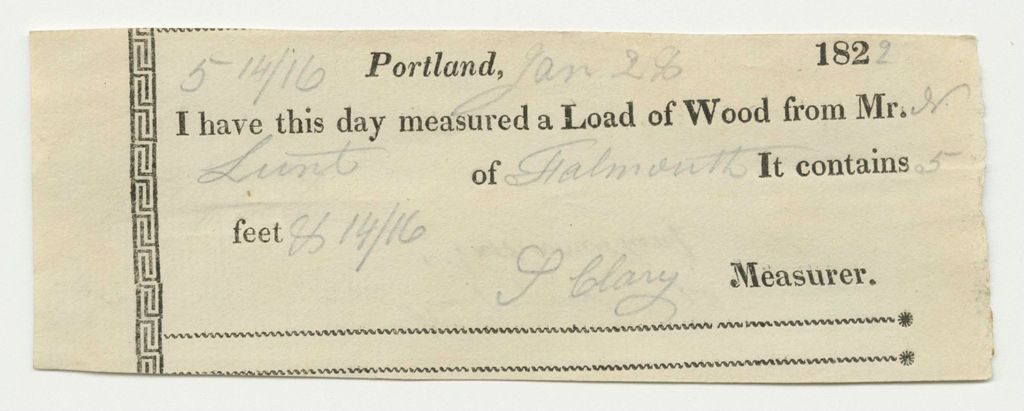 5 14/16 Portland, Jan 28 1822
I have this day measured a Load of Wood from Mr. N
Lunt of Falmouth It contains 5
feet & 14/16
S Clary Measurer.